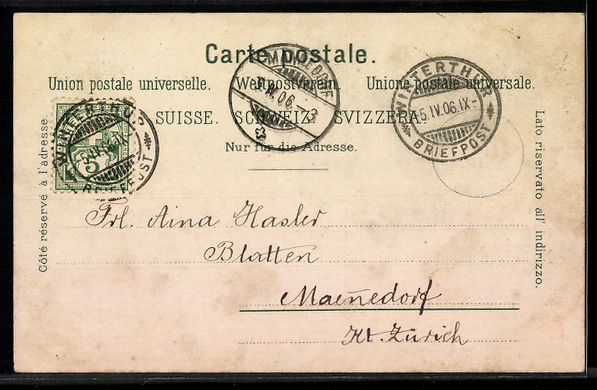 Carte postale.
Union postale universelle. Weltpostverein. Unione postale universale.
SUISSE. SCHWEIZ. SVIZZERA.
Nur für die Adresse.
Côté réservé à l'adresse.
Lato riservato all' indirizzo.
WINTERTHUR
BRIEFPOST
5
MÄNNEDORF
WINTERTHUR
5.IV.06.IX-
BRIEFPOST
Frl. Aina Hasler
Blatten
Maenedorf
Kt. Zürich